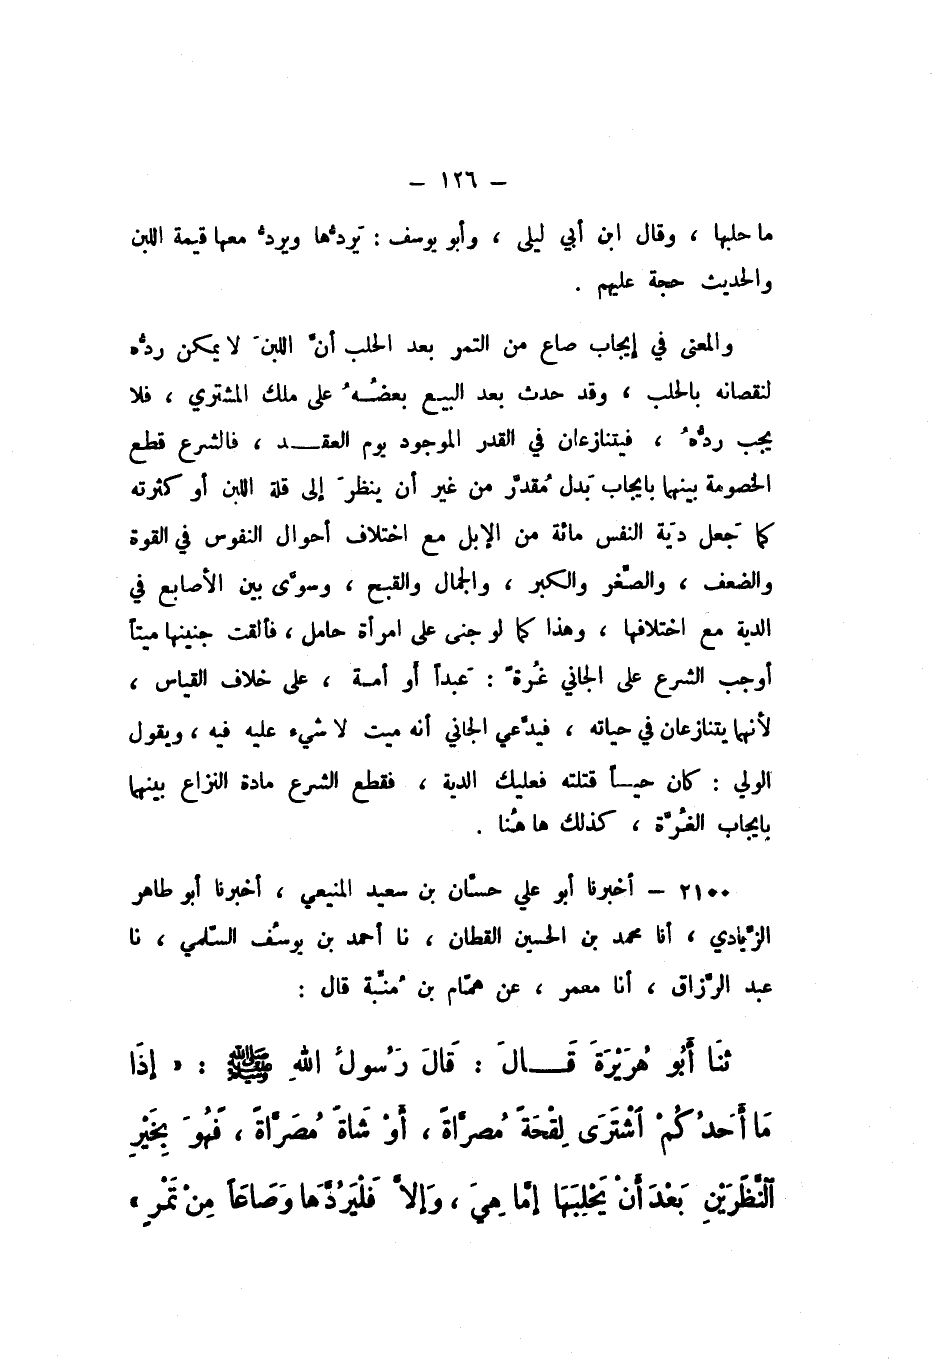 – ١٢٦ –
ما حلبها ، وقال ابن أبي ليلى ، وأبو يوسف : يَردُّها ويردُّ معها قيمة اللبن
والحديث حجة عليهم .
والمعنى في إيجاب صاع من التمر بعد الحلب أنَّ اللبنَ لا يمكن ردُّه
لنقصانه بالحلب ، وقد حدث بعد البيع بعضُهُ على ملك المشتري ، فلا
يجب ردُّهُ ، فيتنازعان في القدر الموجود يوم العقد ، فالشرع قطع
الخصومة بينهما بايجاب بَدل مُقدَّر من غير أن ينظرَ إلى قلة اللبن أو كثرته
كما جَعل ديَة النفس مائة من الإبل مع اختلاف أحوال النفوس في القوة
والضعف ، والصِّغر والكبر ، والجمال والقبح ، وسوَّى بين الأصابع في
الدية مع اختلافها ، وهذا كما لو جنى على امرأة حامل ، فألقت جنينها ميتاً
أوجب الشرع على الجاني غُرةً : عَبداً أو أمة ، على خلاف القياس ،
لأنهما يتنازعان في حياته ، فيدَّعي الجاني أنه ميت لا شيء عليه فيه ، ويقول
الولي : كان حياً قتلته فعليك الدية ، فقطع الشرع مادة النزاع بينهما
بإيجاب الغُرَّة ، كذلك ها هُنا .
٢١٠٠ – أخبرنا أبو علي حسَّان بن سعيد المنيعي ، أخبرنا أبو طاهر
الزِّيادي ، أنا محمد بن الحسين القطان ، نا أحمد بن يوسُف السّلمي ، نا
عبد الرزَّاق ، أنا معمر ، عن همَّام بن مُنبِّه قال :
ثنَا أَبُو هُرَيْرَةَ قَالَ : قَالَ رَسُولُ اللهِ ﷺ : « إذَا
مَا أَحدُكُمْ ٱشْتَرَى لِقْحَةً مُصرَّاةً ، أَوْ شَاةً مُصَرَّاةً ، فَهُوَ بِخَيْرِ
ٱلنَّظَرَيْنِ بَعْدَ أَنْ يَحْلِبَهَا إمَّا هِيَ ، وَإلاَّ فَلْيَرُدَّها وَصَاعَاً مِنْ تَمْرٍ »